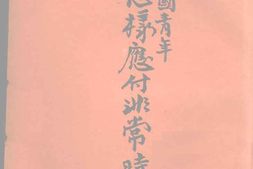 國青年
怎樣應付非常時